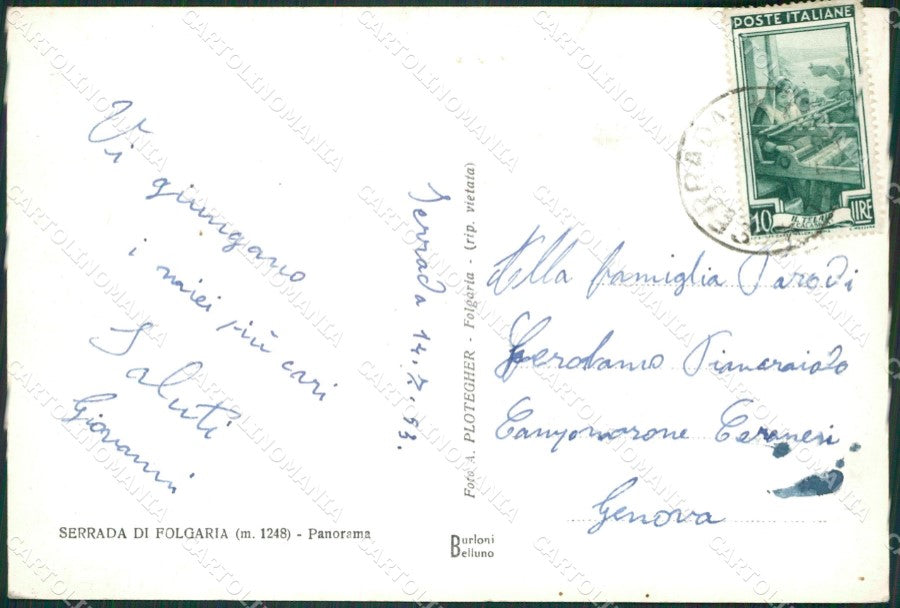 Vi
giungano
i miei più cari
Saluti
Giovanni
Serrada 14.7.53.
SERRADA DI FOLGARIA (m. 1248) - Panorama
Foto A. PLOTEGHER - Folgaria - (rip. vietata)
Burloni
Belluno
POSTE ITALIANE
10 LIRE
Alla famiglia Parodi
Gerolamo
Campomorone Ceranesi
Genova
CARTOLINOMANIA